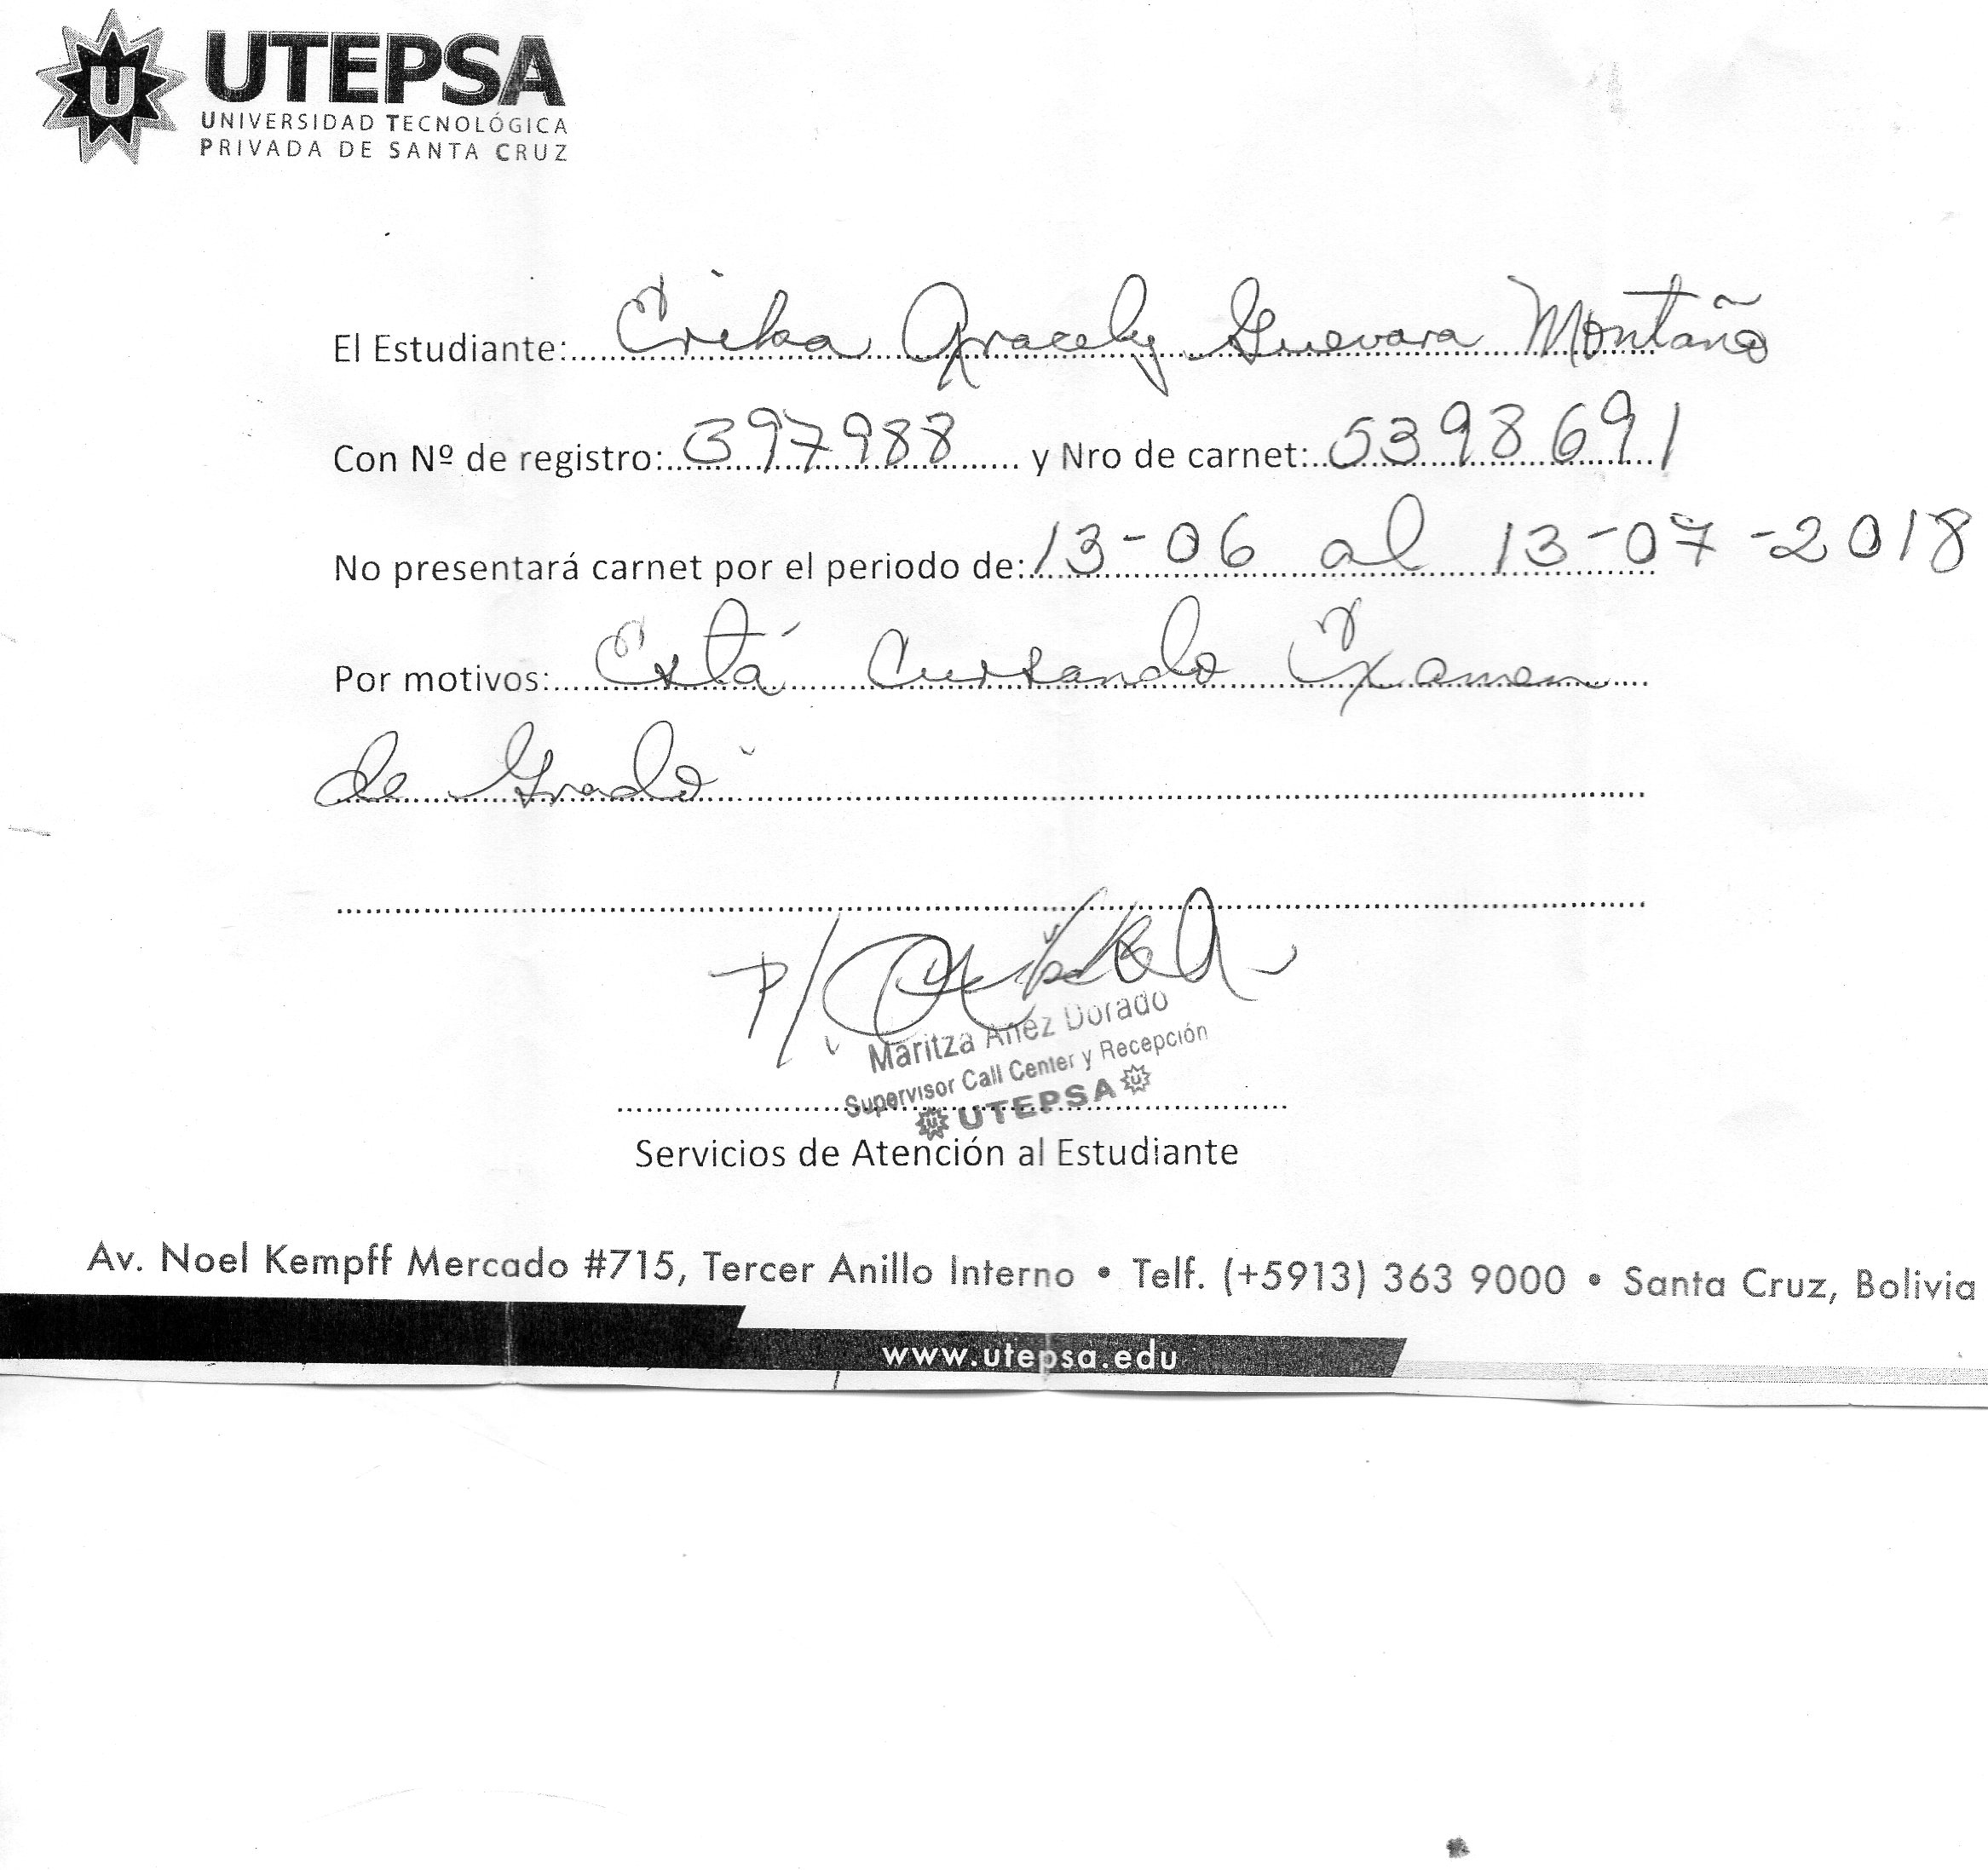 UTEPSA
UNIVERSIDAD TECNOLÓGICA
PRIVADA DE SANTA CRUZ
El Estudiante: Erika Aracely Guevara Montaño
Con Nº de registro: 397988 y Nro de carnet: 5398691
No presentará carnet por el periodo de: 13-06 al 13-07-2018
Por motivos: Está Cursando Examen
de Grado
P/
Maritza Añez Dorado
Supervisor Call Center y Recepción
UTEPSA
Servicios de Atención al Estudiante
Av. Noel Kempff Mercado #715, Tercer Anillo Interno • Telf. (+5913) 363 9000 • Santa Cruz, Bolivia
www.utepsa.edu